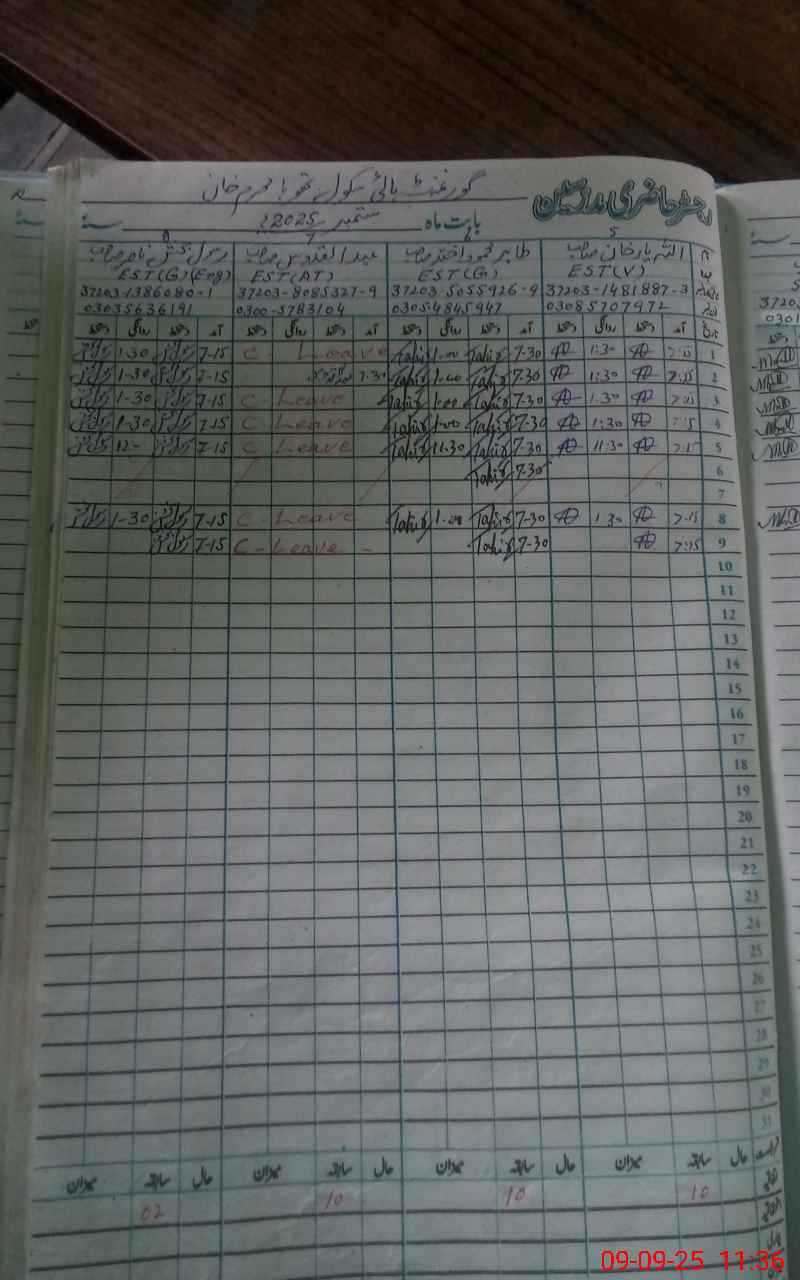 رجسٹر حاضری مدرسین
گورنمنٹ ہائی سکول تھوہا محرم خان
بابت ماہ ستمبر 2025ء سنہ
5 6 7 8
اللہ یار خان صاحب طاہر محمود اختر صاحب عبدالقدوس صاحب رسول بخش ناصر صاحب
EST(V) EST(G) EST(AT) EST(G)(Eng)
37203-1481887-3 37203-5055926-9 37203-8085327-9 37203-1386080-1
03085707972 0305-4845947 0300-5783104 03035636191
تاریخ آمد دستخط روانگی دستخط آمد دستخط روانگی دستخط آمد دستخط روانگی دستخط آمد دستخط روانگی دستخط
1 7:15 1:30 7-30 Tahir 1-00 Tahir C - Leave 7-15 1-30
2 7:15 1:30 7-30 Tahir 1-00 Tahir 7-30 7-15 1-30
3 7:15 1:30 7-30 Tahir 1-00 Tahir C - Leave 7-15 1-30
4 7:15 1:30 7-30 Tahir 1-00 Tahir C - Leave 7-15 1-30
5 7:15 11:30 7-30 Tahir 11-30 Tahir C - Leave 7-15 12-
6 7-30 Tahir
7
8 7-15 1:30 7-30 Tahir 1-00 Tahir C - Leave 7-15 1-30
9 7:15 7-30 Tahir C - Leave - 7-15
10
11
12
13
14
15
16
17
18
19
20
21
22
23
24
25
26
27
28
29
30
31
حال سابقہ میزان حال سابقہ میزان حال سابقہ میزان حال سابقہ میزان
10 10 10 02
09-09-25 11:36